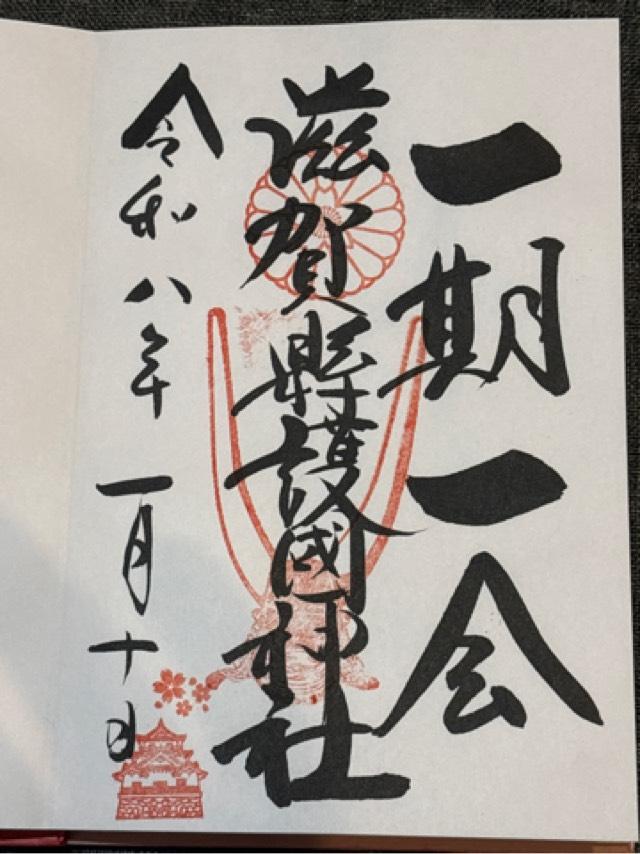 一期一会
滋賀縣護國神社
令和八年一月十日